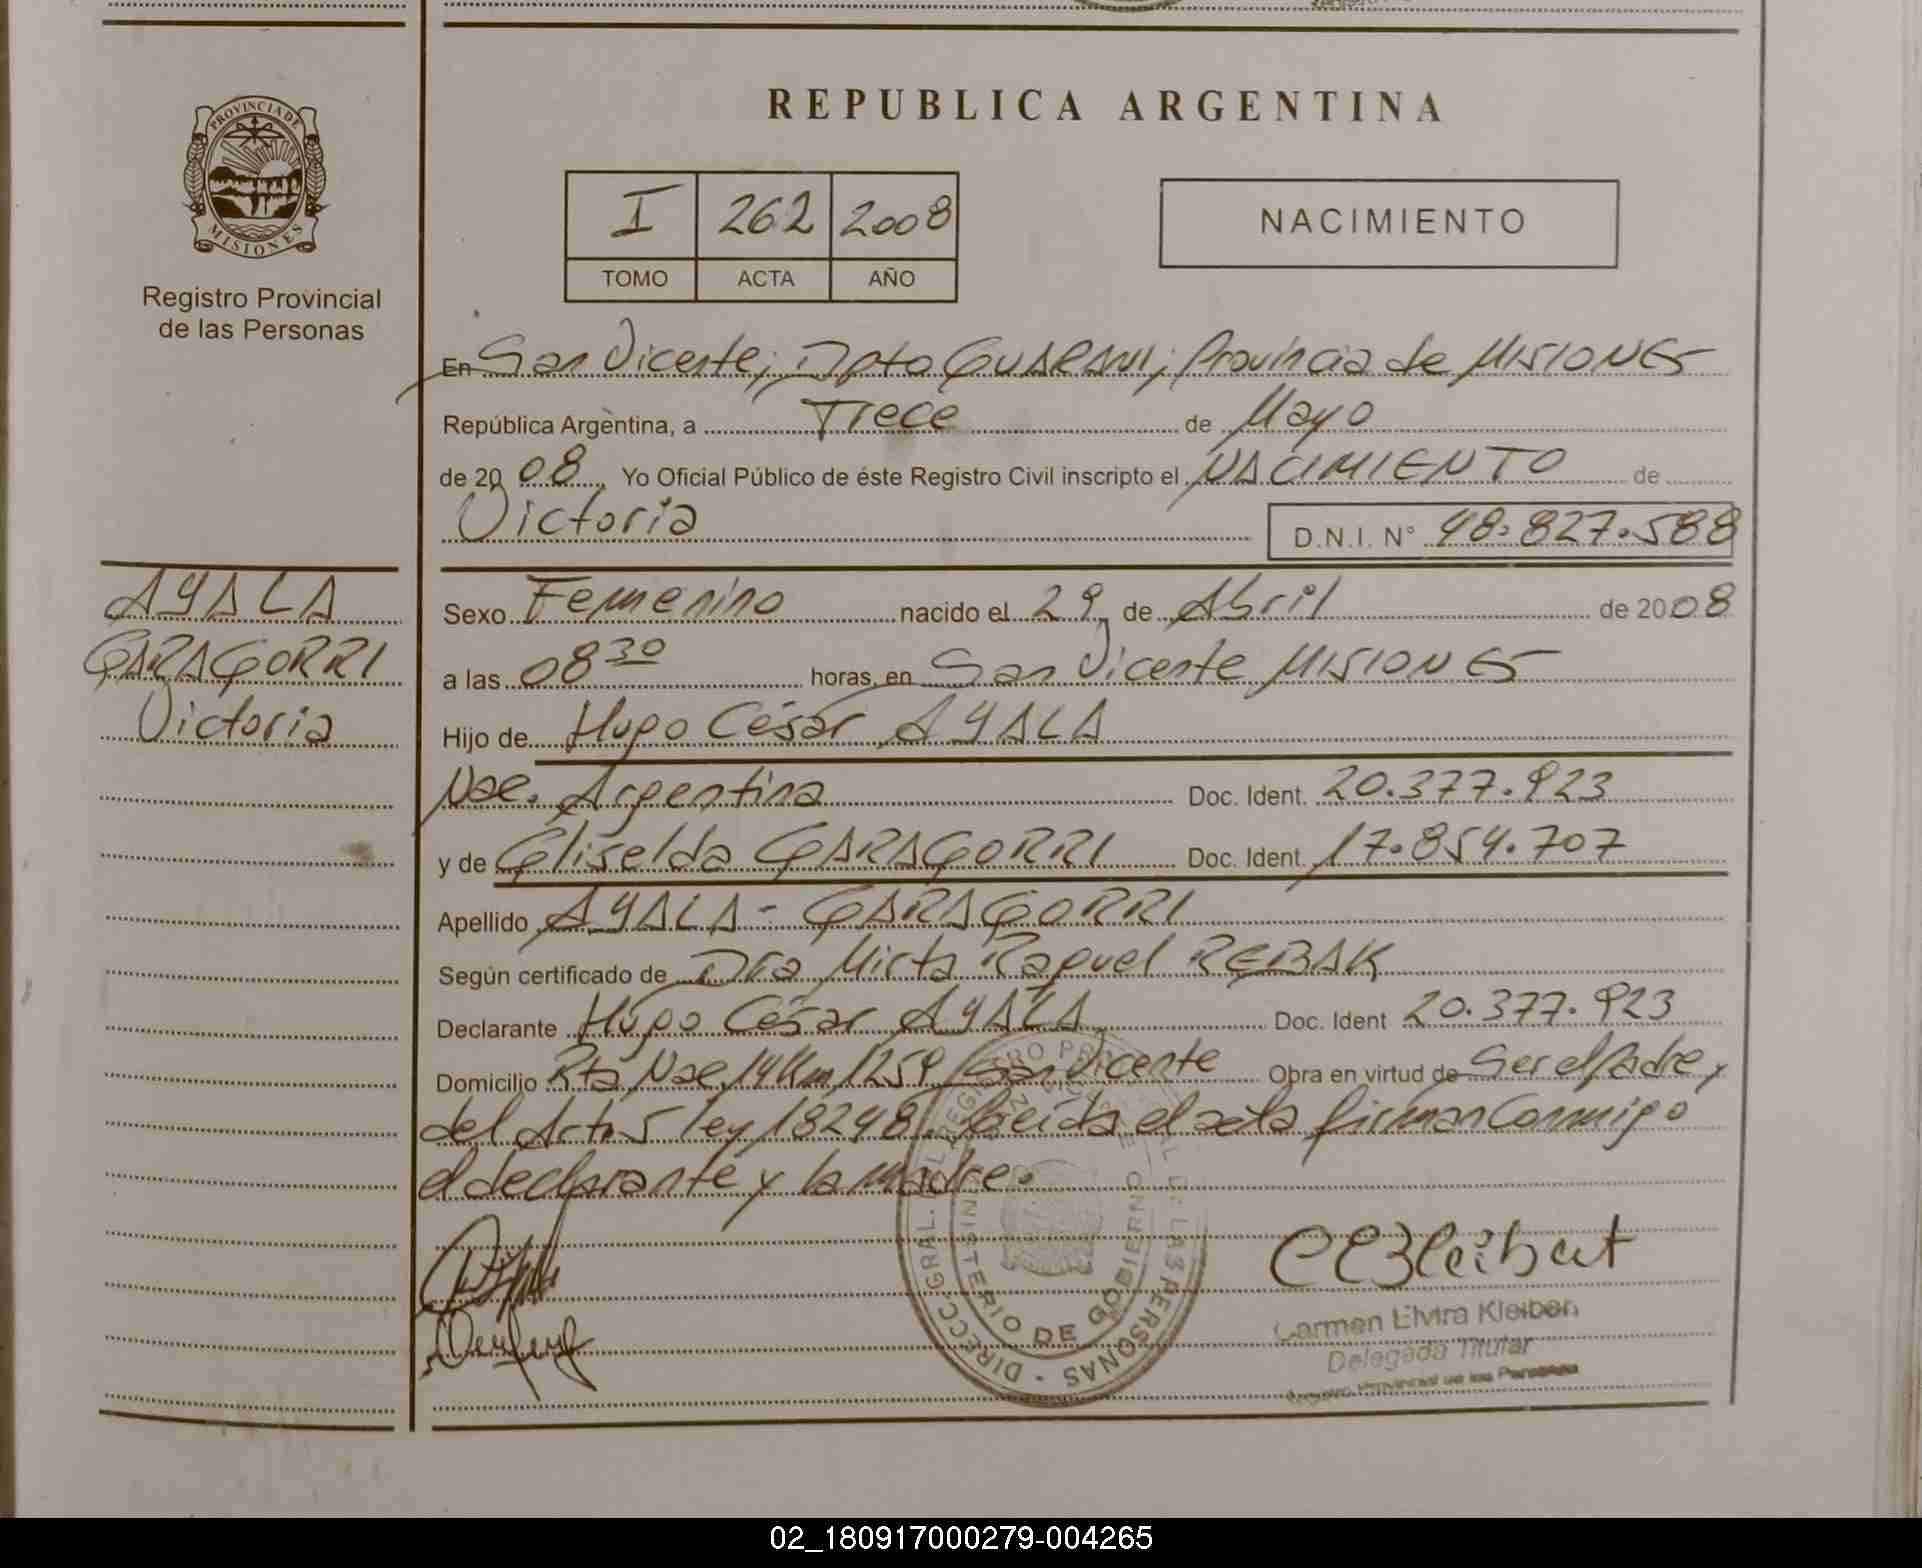 PROVINCIA DE
MISIONES
Registro Provincial
de las Personas
AYALA
GARAGORRI
Victoria
REPUBLICA ARGENTINA
I 262 2008
TOMO ACTA AÑO
NACIMIENTO
En San Vicente; Dpto GUARANI; Provincia de MISIONES
República Argentina, a Trece de Mayo
de 2008 Yo Oficial Público de éste Registro Civil inscripto el NACIMIENTO de
Victoria D.N.I. N° 48.827.588
Sexo Femenino nacido el 29 de Abril de 2008
a las 08 30 horas, en San Vicente MISIONES
Hijo de Hugo César AYALA
Nac. Argentina Doc. Ident. 20.377.923
y de Gliselda GARAGORRI Doc. Ident. 17.854.707
Apellido AYALA - GARAGORRI
Según certificado de Dra Mirta Raquel REBAK
Declarante Hugo César AYALA Doc. Ident 20.377.923
Domicilio Rta Nac 14 Km 1259 San Vicente Obra en virtud de Ser el Padre y
del Arto 5 ley 18248. Leída el acta firman Conmigo
el declarante y la madre.
DIRECC. GRAL. DEL REGISTRO PROVINCIAL DE LAS PERSONAS
MINISTERIO DE GOBIERNO
Carmen Elvira Kleiben
Delegada Titular
Registro Provincial de las Personas
02_180917000279-004265